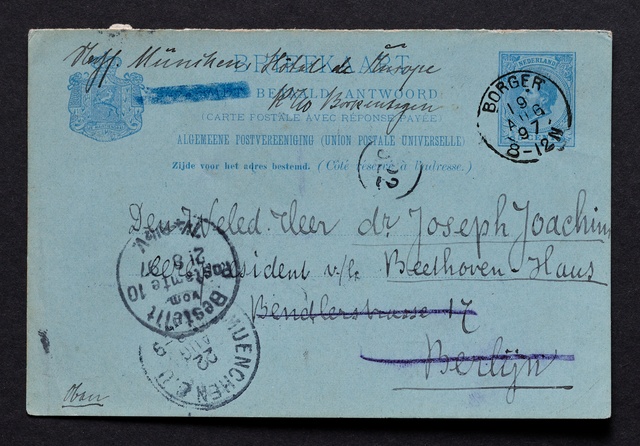 München, Hôtel de l'Europe
BRIEFKAART
BETAALD ANTWOORD
(CARTE POSTALE AVEC RÉPONSE PAYÉE)
ALGEMEENE POSTVEREENIGING (UNION POSTALE UNIVERSELLE)
Zijde voor het adres bestemd. (Côté réservé à l'adresse.)
NEDERLAND
BORGER
19
AUG
97
8-12N
Den Weled. Heer dr. Joseph Joachim
President v/h. Beethoven Haus
Bendlerstrasse 17
Berlijn
Bestellt
vom
Postamte 10
21/8
97
MUENCHEN
22
AUG